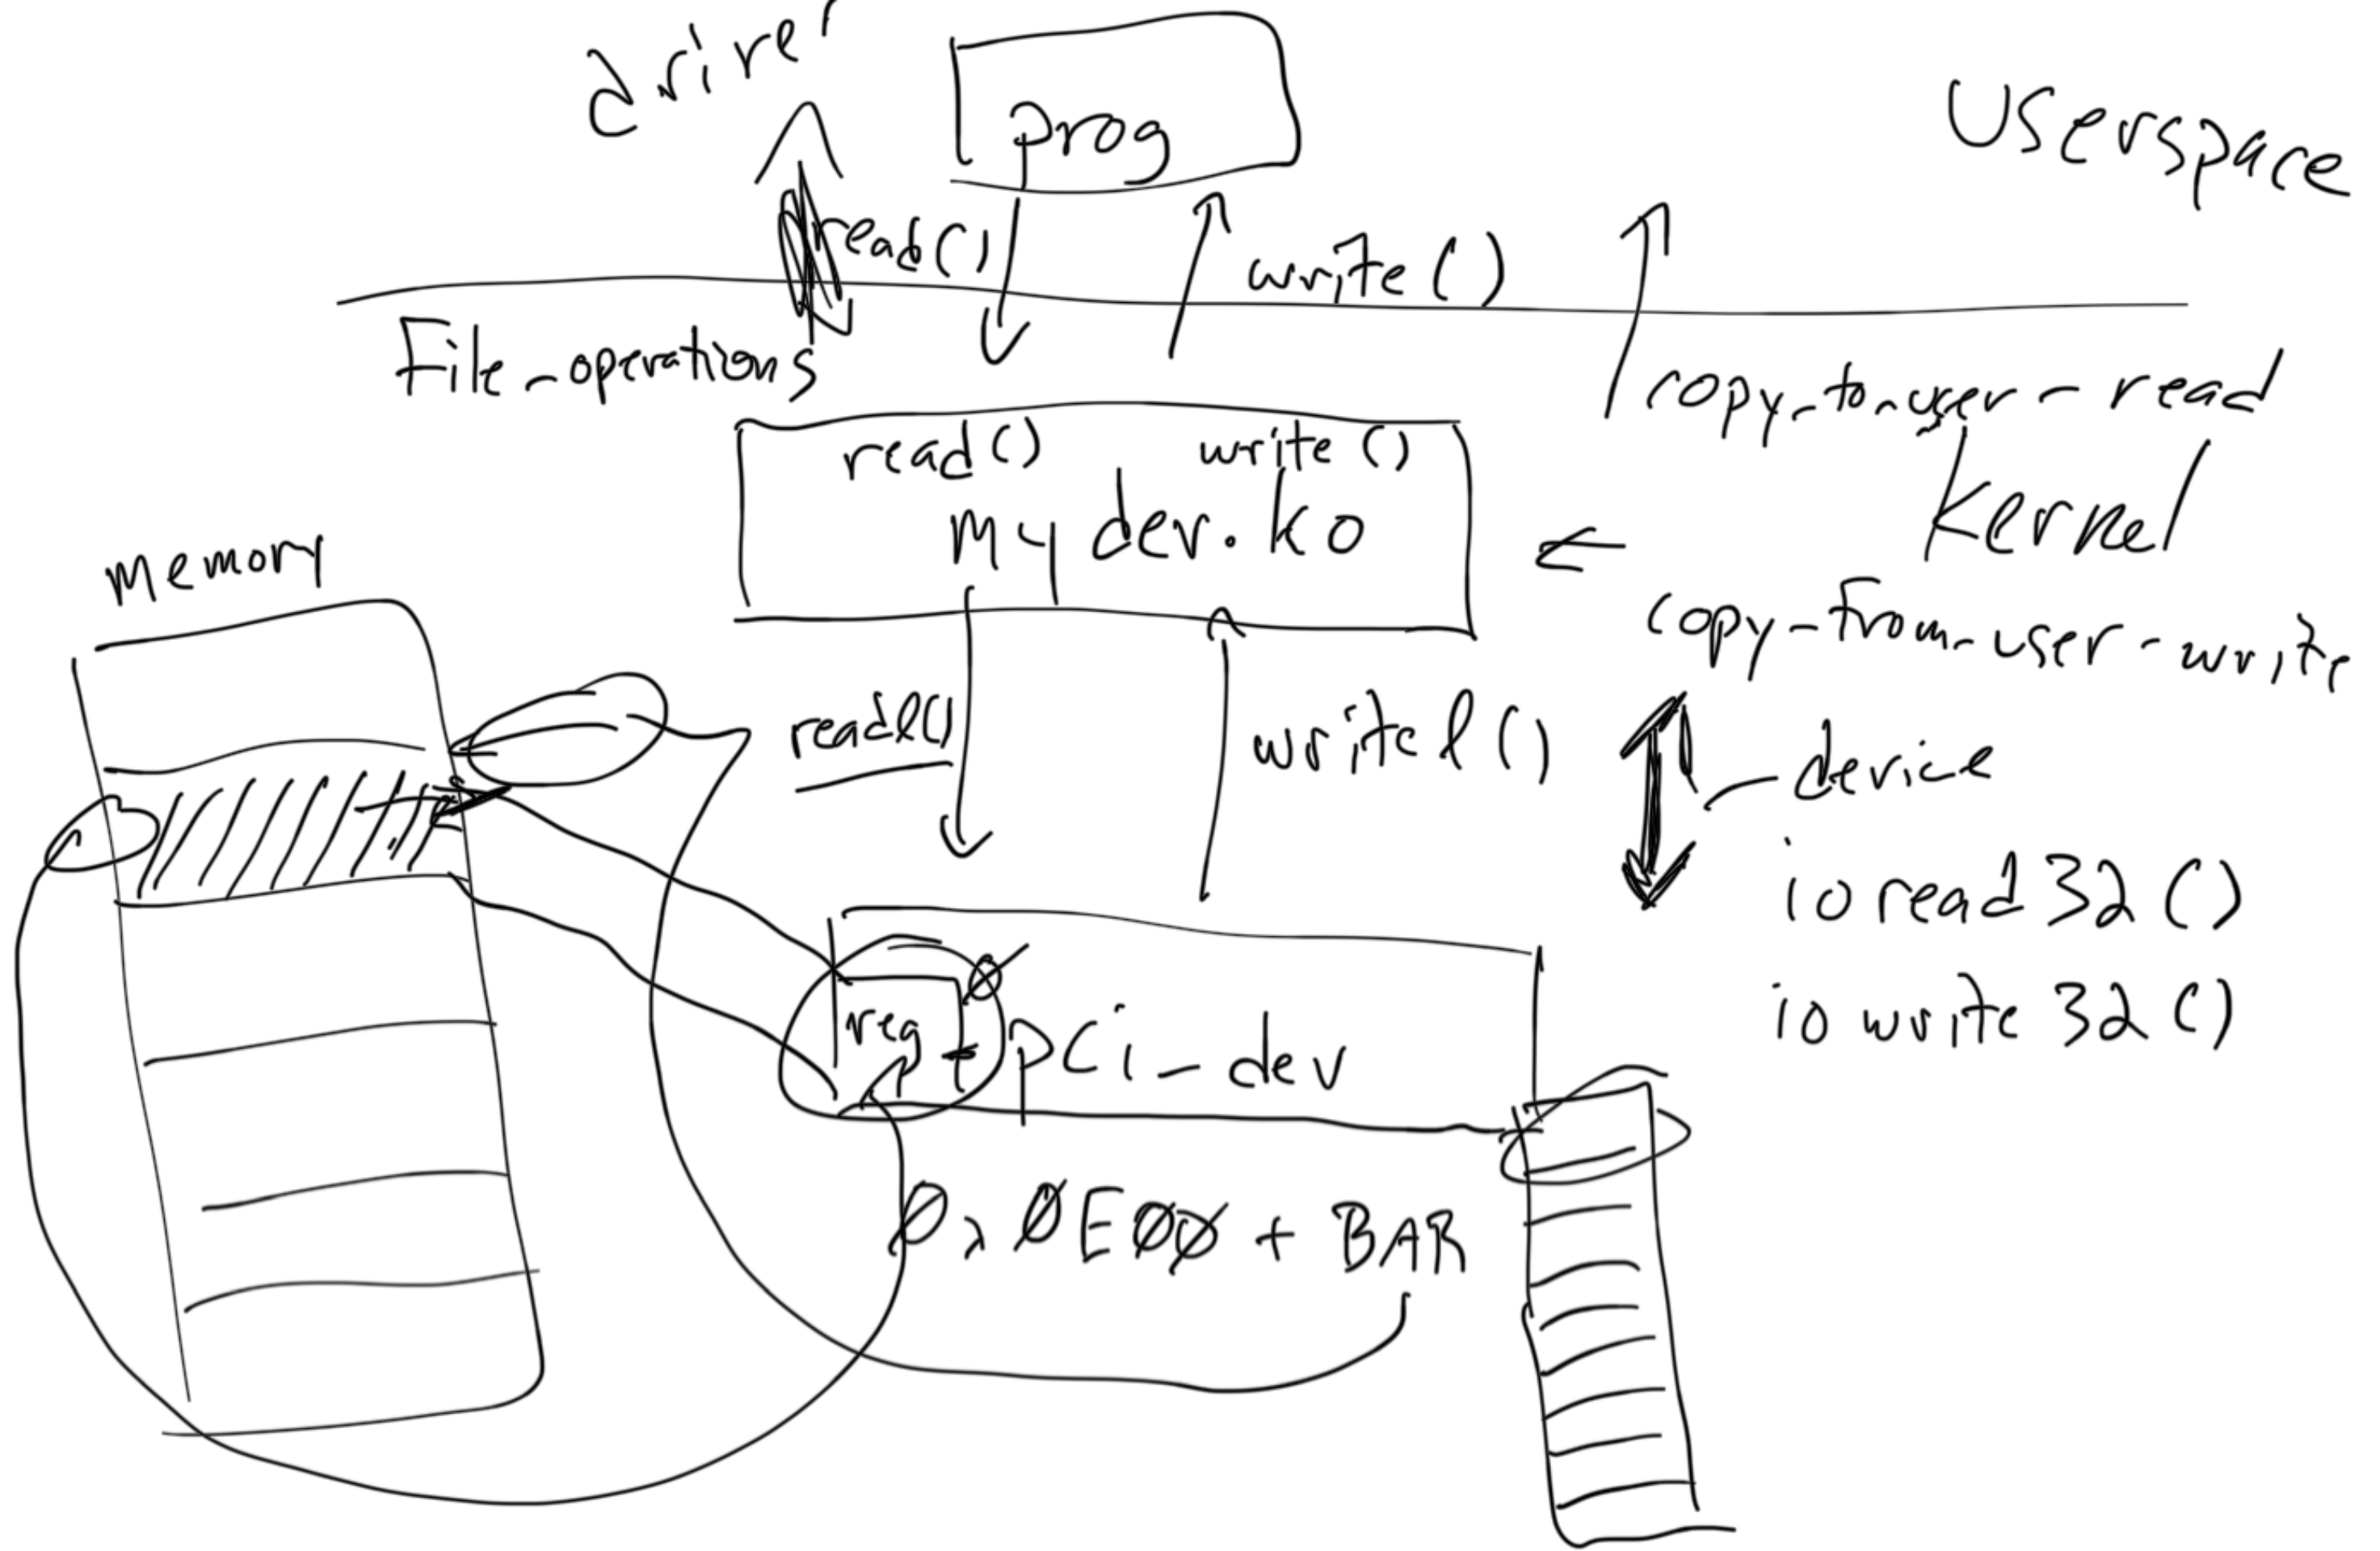 driver
prog
Userspace
read()
write()
File_operations
copy_to_user - read
read() write()
my dev.ko
Kernel
memory
copy_from_user - write
readl()
writel()
device
ioread32()
iowrite32()
reg
0
pci_dev
0x0E00 + BAR